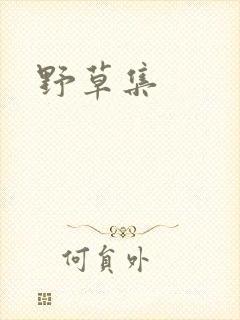 野草集
何貟外